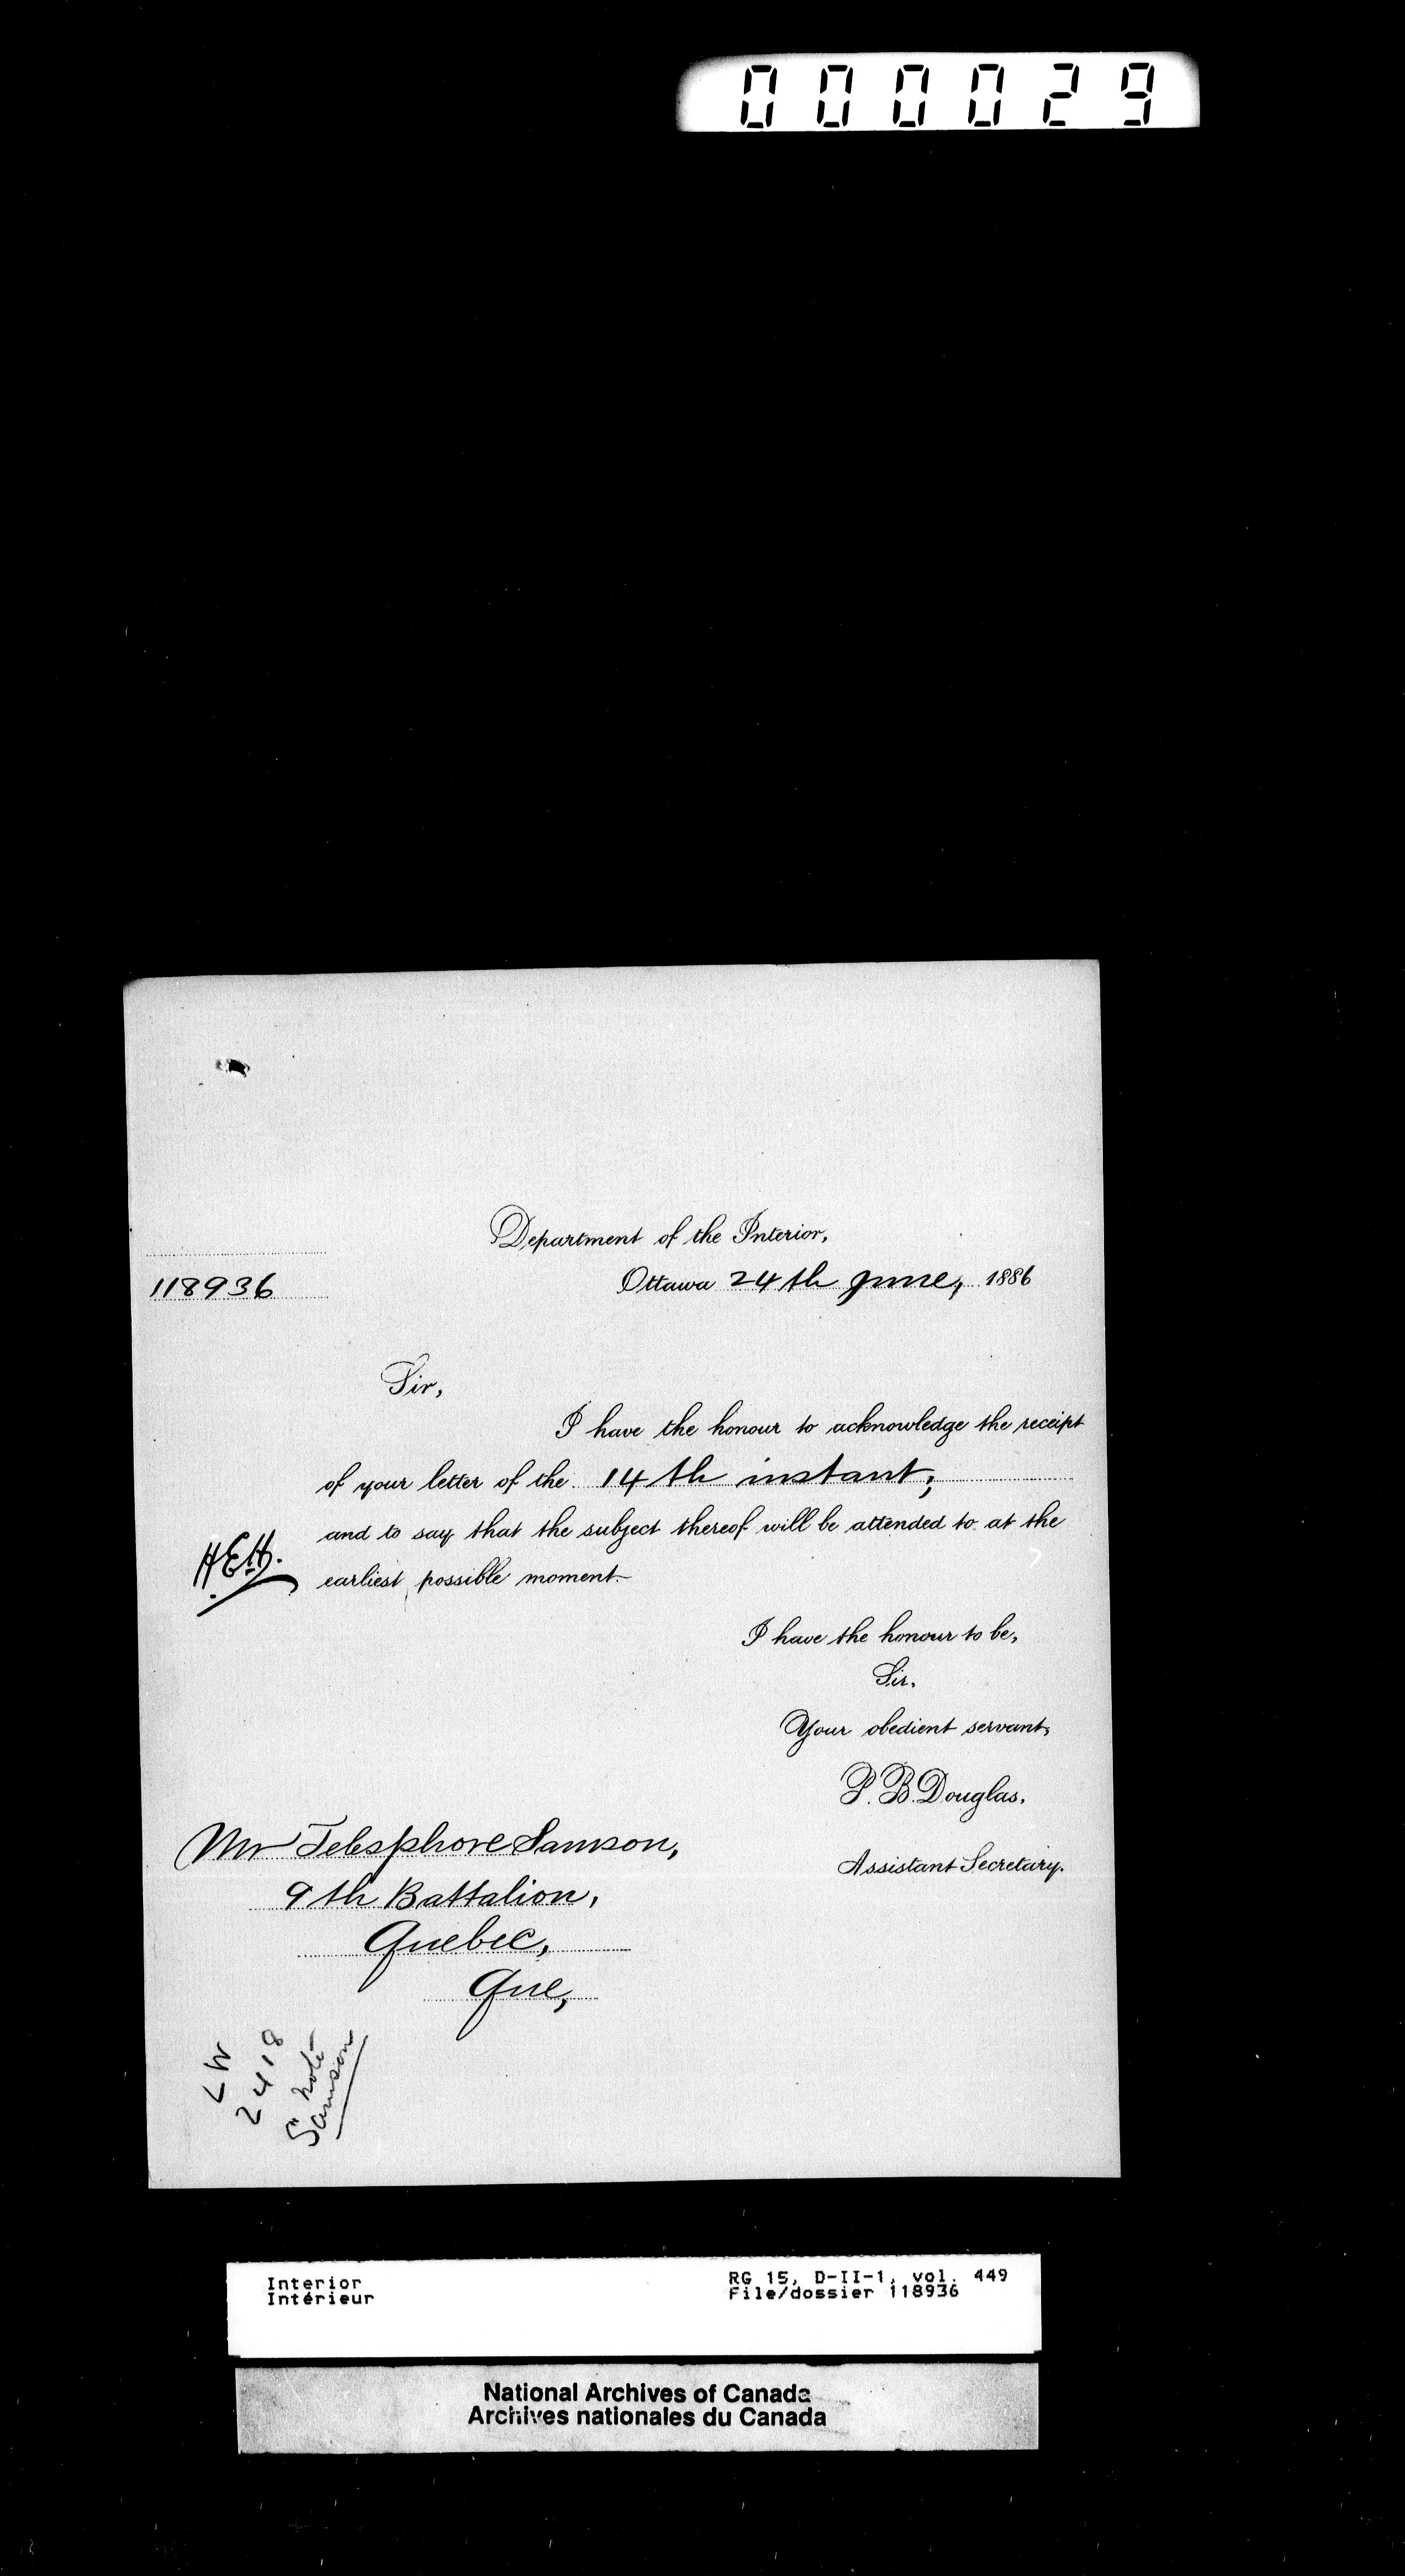 000029
Department of the Interior,
118936
Ottawa 24th June, 1886
Sir,
I have the honour to acknowledge the receipt
of your letter of the 14th instant,
and to say that the subject thereof will be attended to at the
earliest possible moment.
I have the honour to be,
Sir,
Your obedient servant,
P. B. Douglas,
Assistant Secretary.
Mr Telesphore Samson,
9th Battalion,
Quebec,
Que,
LW
2418
Samson
Interior
Intérieur
RG 15, D-II-1, vol. 449
File/dossier 118936
National Archives of Canada
Archives nationales du Canada